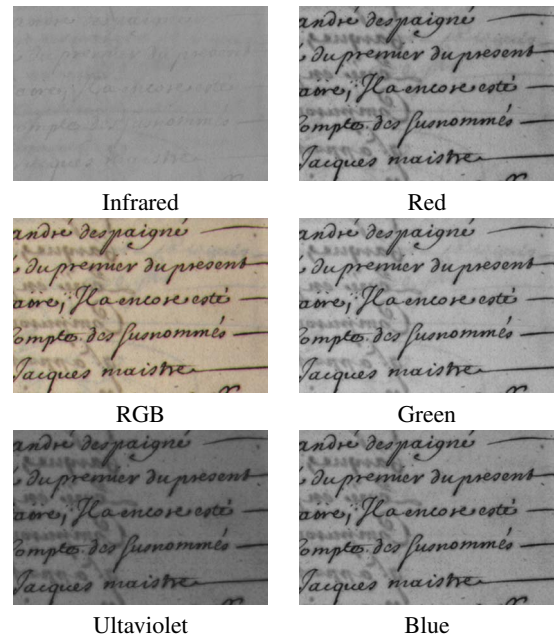 Infrared
andré despaigné
du premier du present
Il a encore esté
Compte des susnommés
Jacques maistre
Red
andré despaigné
du premier du present
Il a encore esté
Compte des susnommés
Jacques maistre
RGB
andré despaigné
du premier du present
Il a encore esté
Compte des susnommés
Jacques maistre
Green
andré despaigné
du premier du present
Il a encore esté
Compte des susnommés
Jacques maistre
Ultaviolet
andré despaigné
du premier du present
Il a encore esté
Compte des susnommés
Jacques maistre
Blue